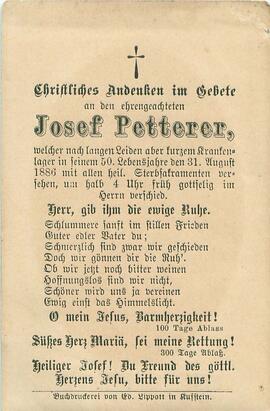 Christliches Andenken im Gebete
an den ehrengeachteten
Josef Petterer,
welcher nach langen Leiden aber kurzem Kranken-
lager in seinem 50. Lebensjahre den 31. August
1886 mit allen heil. Sterbsakramenten ver-
sehen, um halb 4 Uhr früh gottselig im
Herrn verschied.
Herr, gib ihm die ewige Ruhe.
Schlummere sanft im stillen Frieden
Guter edler Vater du;
Schmerzlich sind zwar wir geschieden
Doch wir gönnen dir die Ruh'.
Ob wir jetzt noch bitter weinen
Hoffnungslos sind wir nicht,
Schöner wird uns ja vereinen
Ewig einst das Himmelslicht.
O mein Jesus, Barmherzigkeit!
100 Tage Ablass
Süßes Herz Mariä, sei meine Rettung!
300 Tage Ablaß.
Heiliger Josef! Du Freund des göttl.
Herzens Jesu, bitte für uns!
Buchdruckerei von Ed. Lippott in Kufstein.